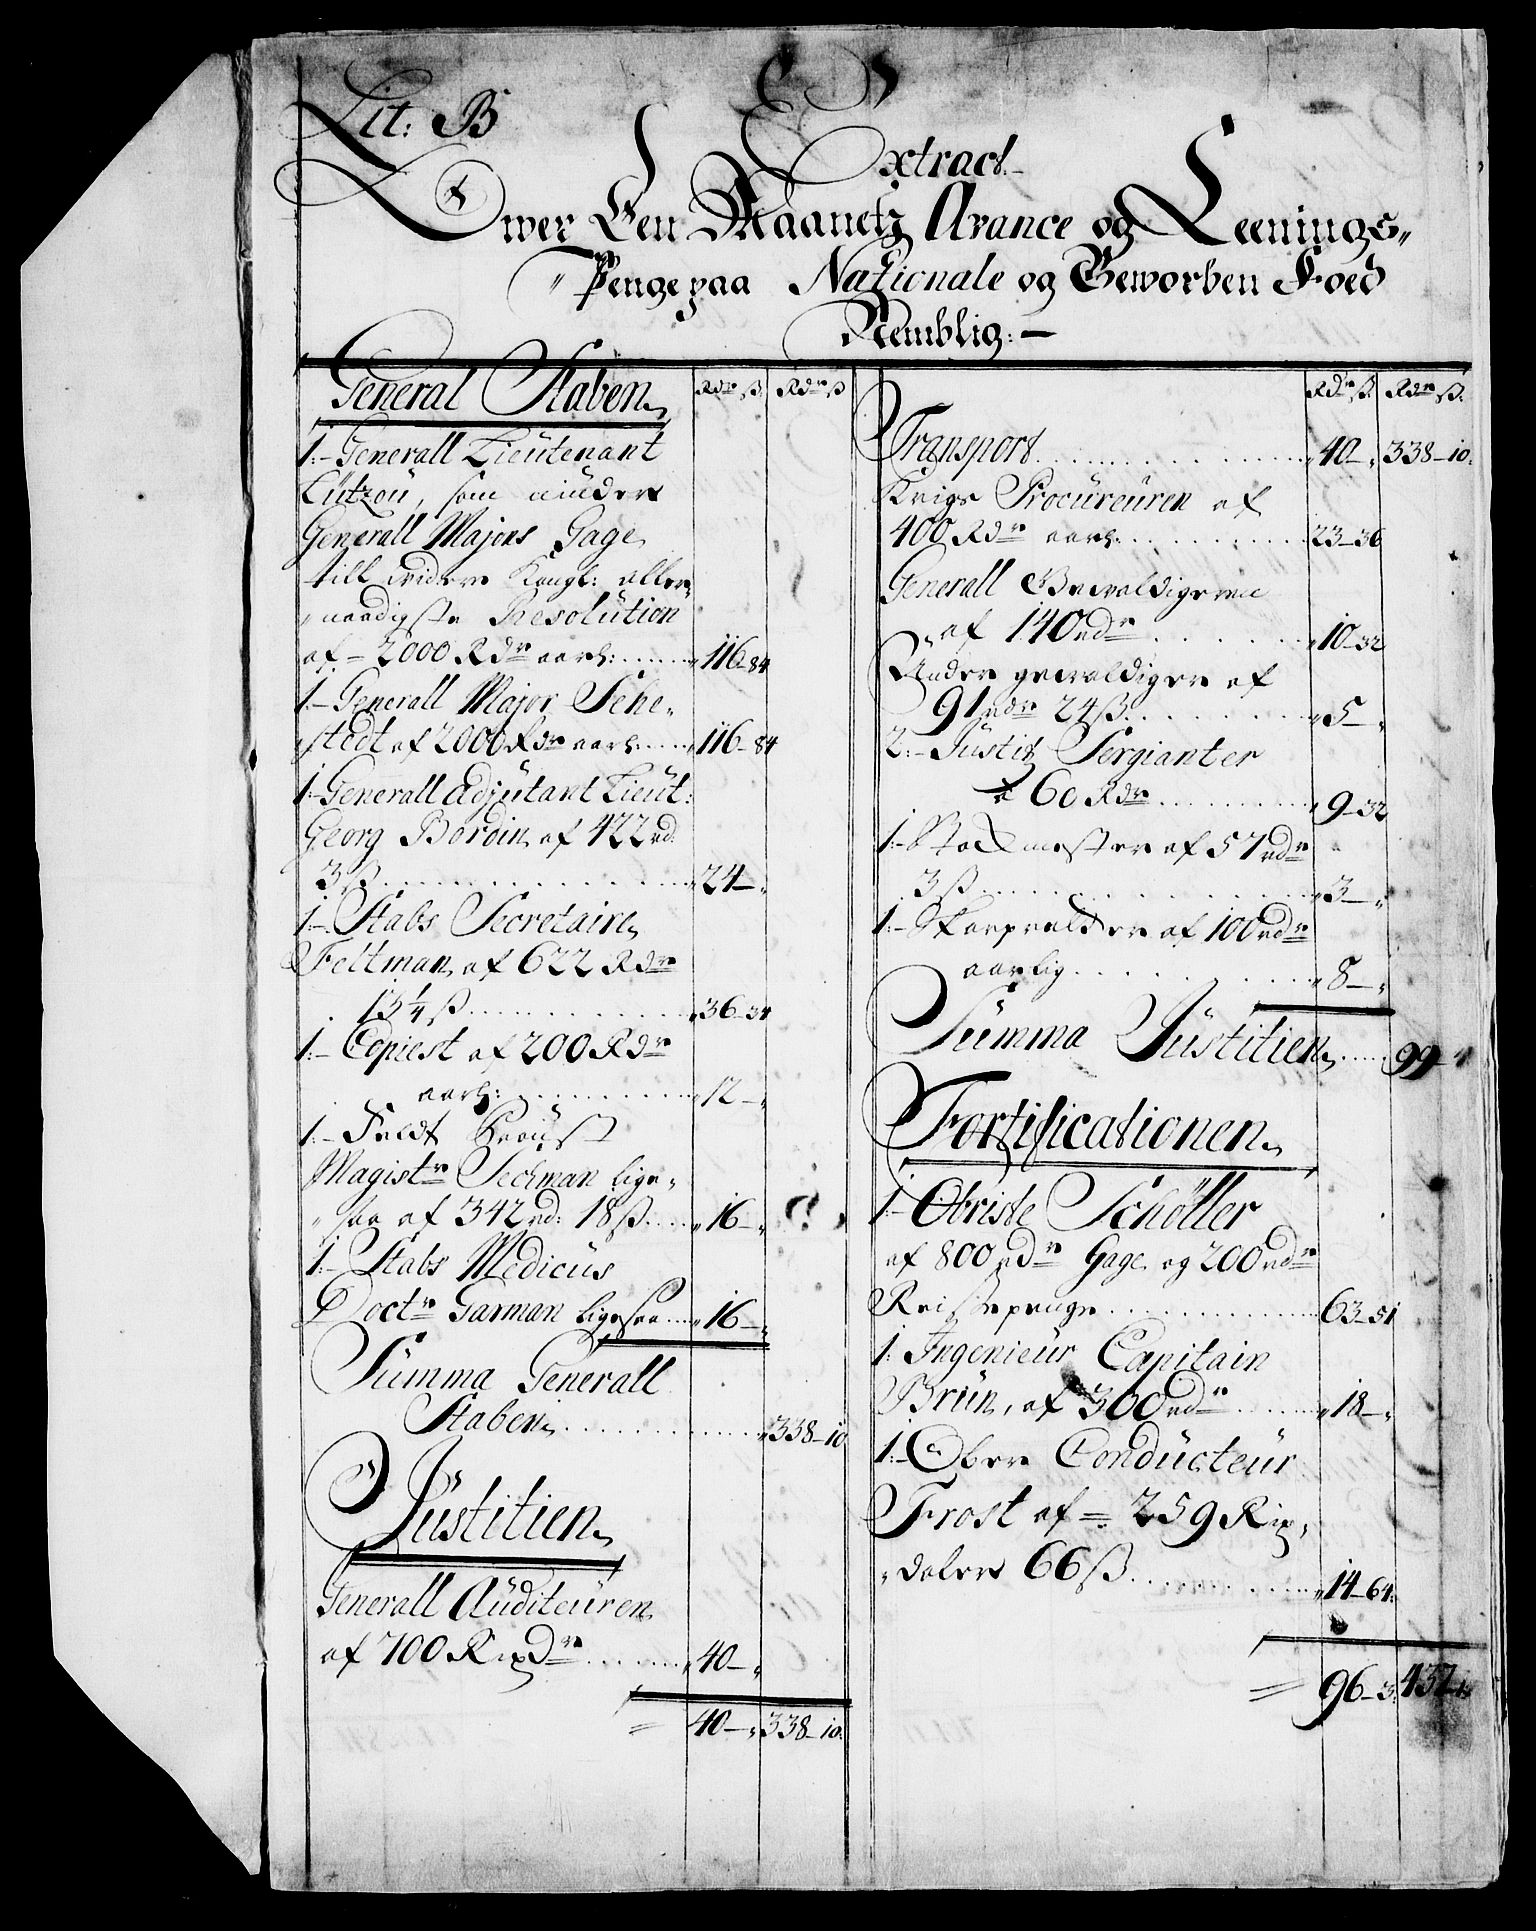 Lit: B
Extract
Over Een Maanetz Avance og Leenings„
„Penge paa Nationale og Geworben Foed
Nemblig:
General Staben
Rdr ß. Rdr ß
1:- Generall Lieutenant
Lützou, som
Generall Majors Gage
till widere Kongl: aller„
„naadigste Resolution
af - 2000 Rdr aarl: ..... 116-84
1- Generall Major Sehe„
„stedt af 2000 Rdr aarl: .... 116-84
1- Generall Adjutant Lieut:
Georg Bordin af 422 rd:
3 ß ............ 24-„
1:- Stabs Secretaire
Feltman af 622 Rdr
13 1/4 ß ............ 36-34
1:- Copiest af 200 Rdr
aarl: ............ 12-„
1:- Feldt Proust
Magistr Sechman lige„
„saa af 342 rd: 18 ß .... 16-„
1:- Stabs Medicus
Doctr Garman ligesaa ... 16-„
Summa Generall
Staben ............ 338-10
Justitien
Generall Auditeuren
af 700 Rixdr ...... 40-„
= 40-„ 338-10.
Rdr ß. Rdr ß.
Transport ............ 40-„ 338-10.
Krigs Procureuren af
400 Rdr aarl: ............ 23-36
Generall Gevaldigeren
af 140 rdr ...... 10-32
Under gevaldiger af
91 rdr 24 ß. ...... 5-„
2:- Justitz Sergianter
a 60 Rdr ......... 9-32
1:- Stockmester af 57 rdr
3 ß ............ 3-„
1:- Skarpretter af 100 rdr
aarlig ............ 8-„
Summa Justitien .... 99-4
Fortificationen
1:- Obriste Schöller
af 800 rdr Gage og 200 rdr
Reisepenge ............ 63-51
1: Ingenieur Capitain
Brün, af 300 rdr ...... 18-„
1:- Ober Conducteur
Frost af - 259 Rix„
„daler 66 ß ............ 14-64.
= 96-3. 437-